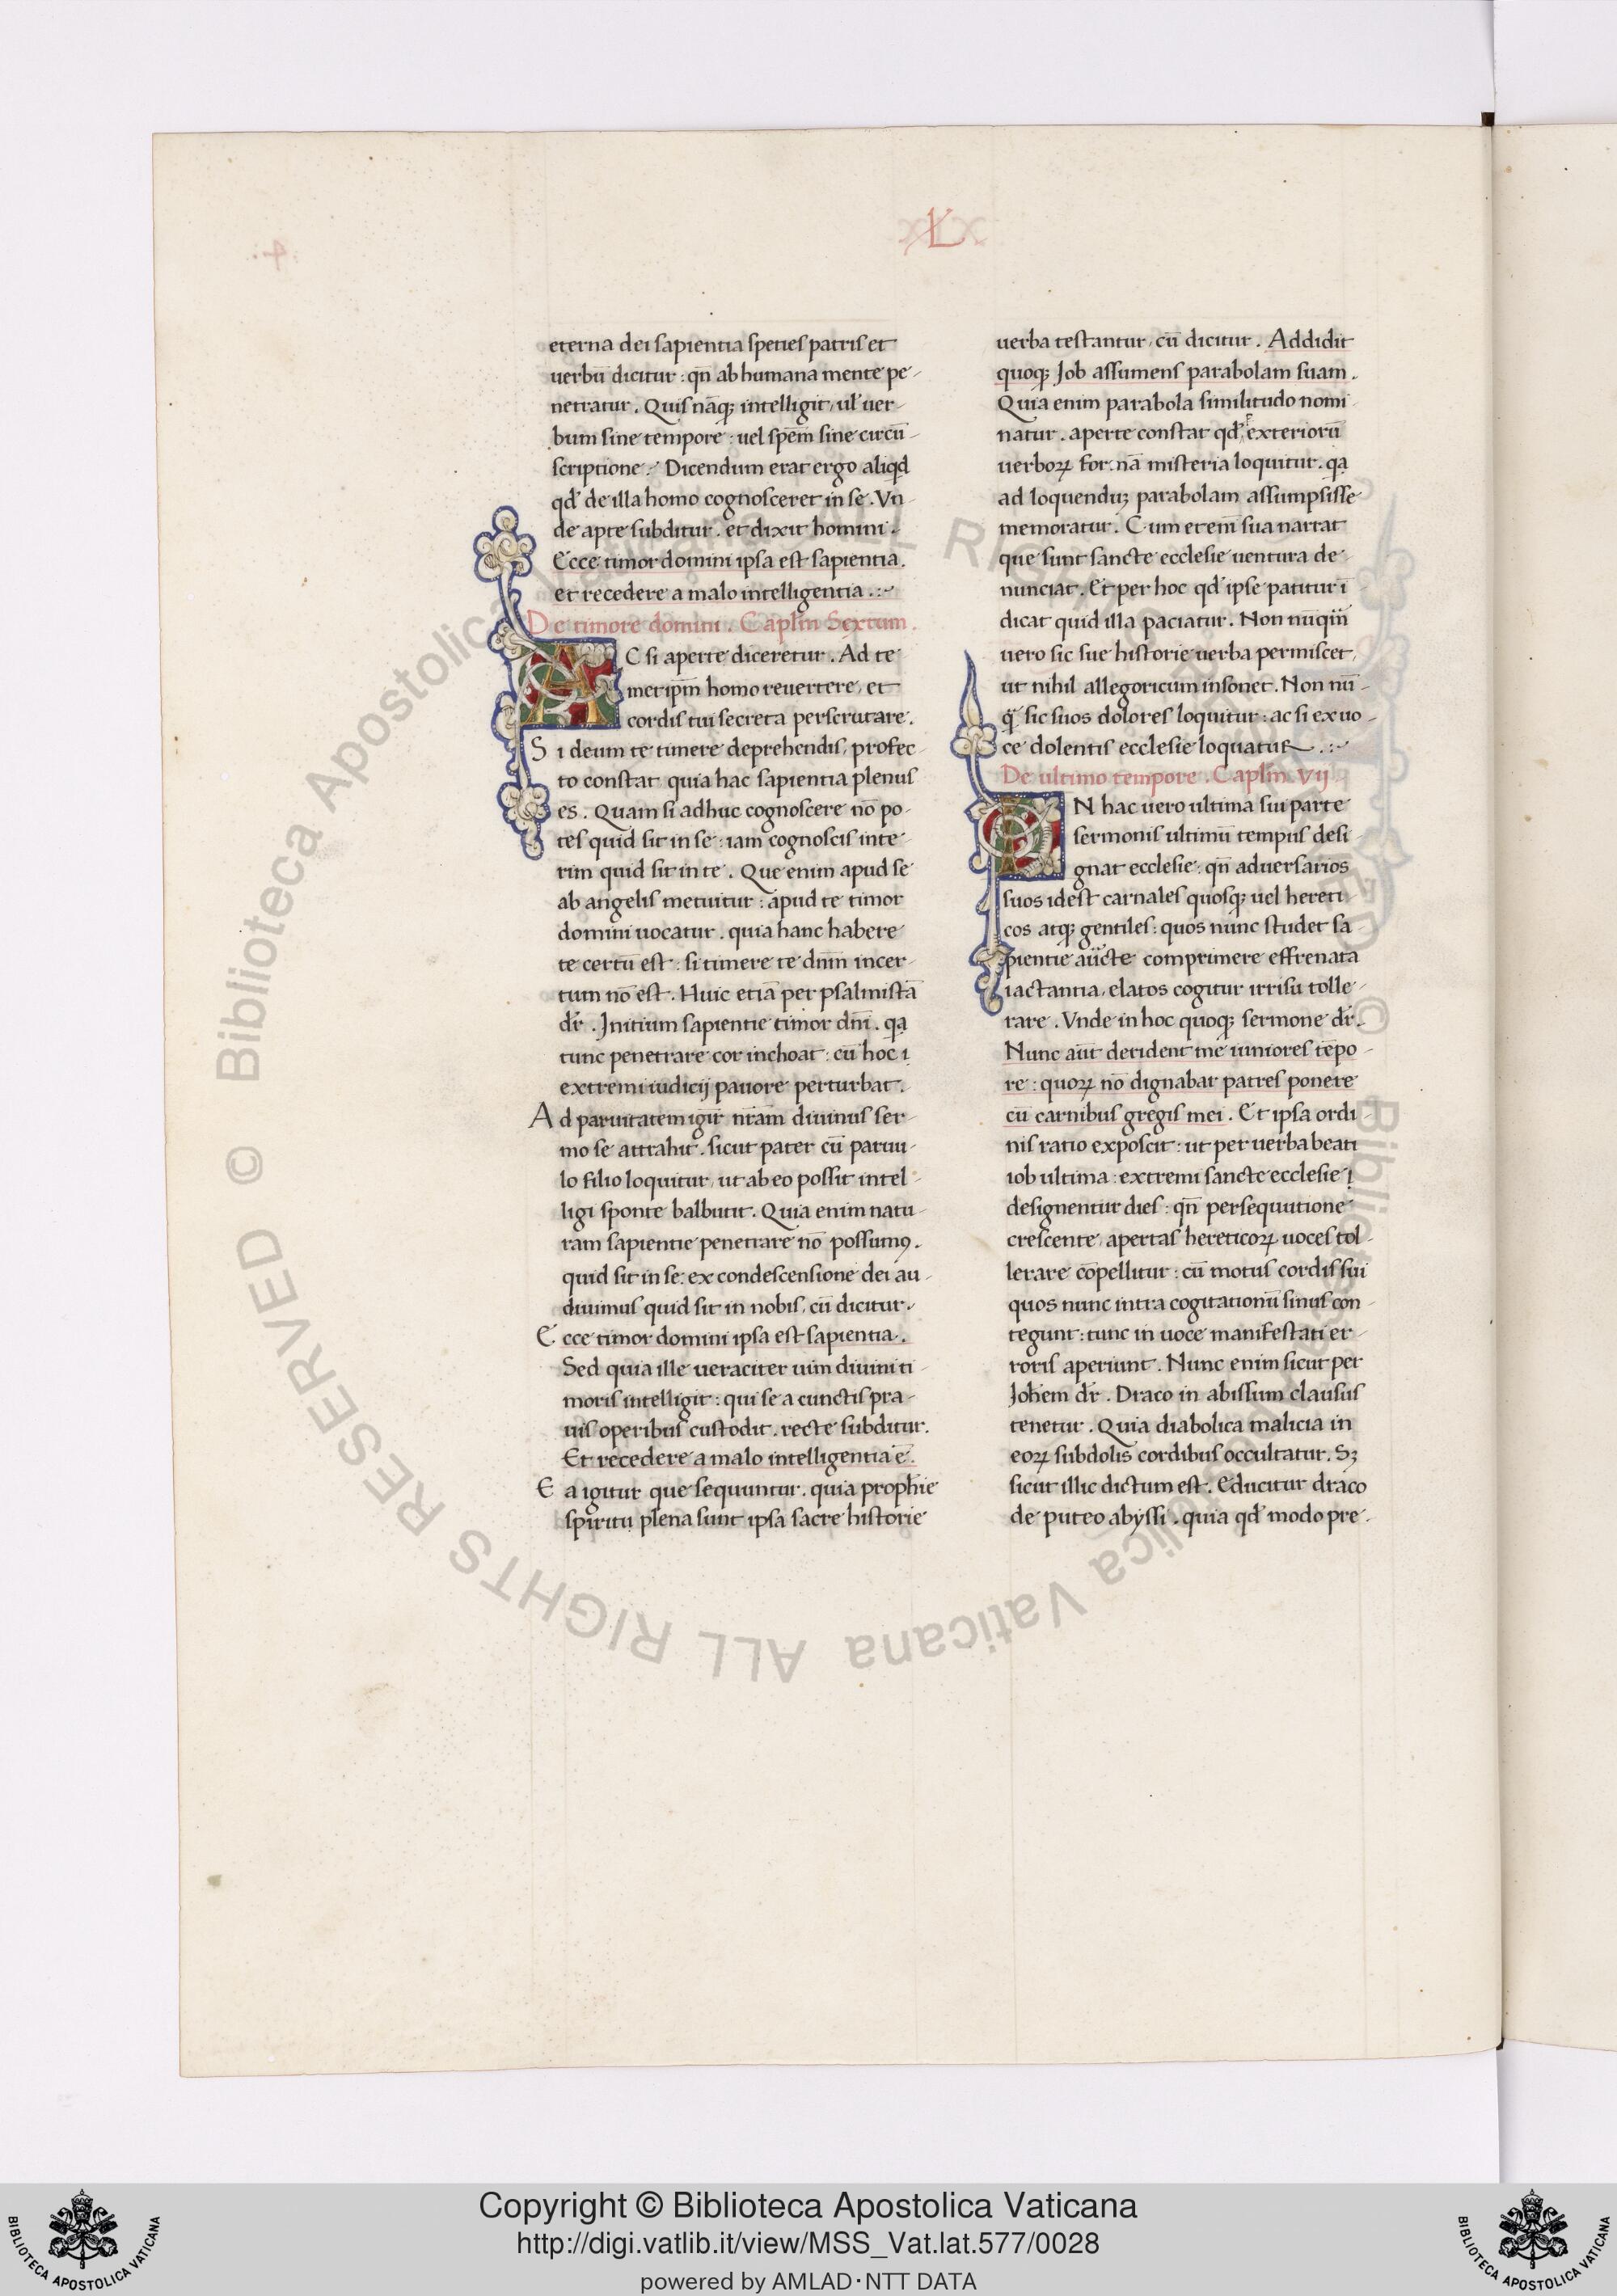 L
eterna dei sapientia speties patris et
uerbū dicitur : qñ ab humana mente pe-
netratur . Quis nāq; intelligit, ul' uer-
bum sine tempore : uel spēm sine circū-
scriptione . Dicendum erat ergo aliqd
qd' de illa homo cognosceret in se . Vn-
de apte subditur . et dixit homini .
Ecce timor domini ipsa est sapientia .
et recedere a malo intelligentia . :~
De timore domini . Caplm Sextum .
AC si aperte diceretur . Ad te
metipm̄ homo reuertere, et
cordis tui secreta perscrutare .
Si deum te timere deprehendis, profec-
to constat quia hac sapientia plenus
es . Quam si adhuc cognoscere nō po-
tes quid sit in se : iam cognoscis inte-
rim quid sit in te . Que enim apud se
ab angelis metuitur : apud te timor
domini uocatur . quia hanc habere
te certū est : si timere te dnm̄ incer-
tum nō est . Huic etiā per psalmistā
dr̄ . Initium sapientie timor dn̄i . qa
tunc penetrare cor inchoat : cū hoc i
extremi iudicij pauore perturbat .
Ad paruitatem igit̄ nr̄am diuinus ser-
mo se attrahit . sicut pater cū paruu-
lo filio loquitur, ut ab eo possit intel-
ligi sponte balbutit . Quia enim natu-
ram sapientie penetrare nō possumꝰ .
quid sit in se : ex condescensione dei au-
diuimus quid sit in nobis, cū dicitur .
Ecce timor domini ipsa est sapientia .
Sed quia ille ueraciter uim diuini ti-
moris intelligit : qui se a cunctis pra-
uis operibus custodit . recte subditur .
Et recedere a malo intelligentia ē .
Ea igitur que sequuntur . quia proph̄ie
spiritu plena sunt ipsa sacre historie
uerba testantur, cū dicitur . Addidit
quoq; Job assumens parabolam suam .
Quia enim parabola similitudo nomi-
natur . aperte constat qd' exteriorū
uerboꝝ for nā misteria loquitur . qa
ad loquenduꝫ parabolam assumpsisse
memoratur . Cum etenī sua narrat
que sunt sancte ecclesie uentura de-
nunciat . Et per hoc qd' ipse patitur ī-
dicat quid illa paciatur . Non nūqm̄
uero sic sue historie uerba permiscet,
ut nihil allegoricum insonet . Non nū-
q̄ sic suos dolores loquitur : ac si ex uo-
ce dolentis ecclesie loquatur . :~
De ultimo tempore . Caplm . vij
IN hac uero ultima sui parte
sermonis ultimū tempus desi-
gnat ecclesie : qñ aduersarios
suos idest carnales quosq; uel hereti-
cos atq; gentiles : quos nunc studet sa-
pientie aūcte comprimere effrenata
iactantia, elatos cogitur irrisu tolle-
rare . Vnde in hoc quoq; sermone dr̄ .
Nunc aūt derident me iuniores tēpo-
re : quoꝝ nō dignabar patres ponere
cū carnibus gregis mei . Et ipsa ordi-
nis ratio exposcit : ut per uerba beati
iob ultima : extremi sancte ecclesie i
designentur dies : qñ persequutione
crescente, apertas hereticoꝝ uoces tol-
lerare cōpellitur : cū motus cordis sui
quos nunc intra cogitationū sinus con-
tegunt : tunc in uoce manifestati er-
roris aperiunt . Nunc enim sicut per
Joh̄em dr̄ . Draco in abissum clausus
tenetur . Quia diabolica malicia in
eoꝝ subdolis cordibus occultatur . Sꝫ
sicut illic dictum est . Educitur draco
de puteo abyssi . quia qd' modo pre-
© Biblioteca Apostolica Vaticana ALL RIGHTS RESERVED © Biblioteca Apostolica Vaticana ALL RIGHTS RESERVED
Copyright © Biblioteca Apostolica Vaticana
http://digi.vatlib.it/view/MSS_Vat.lat.577/0028
powered by AMLAD·NTT DATA
BIBLIOTECA APOSTOLICA VATICANA
BIBLIOTECA APOSTOLICA VATICANA